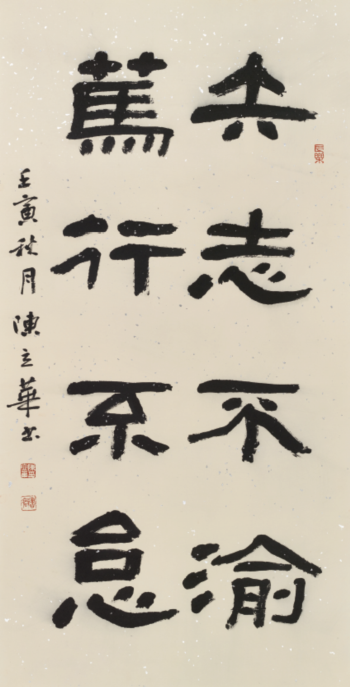 矢志不渝
篤行不怠
壬寅秋月陳立華书